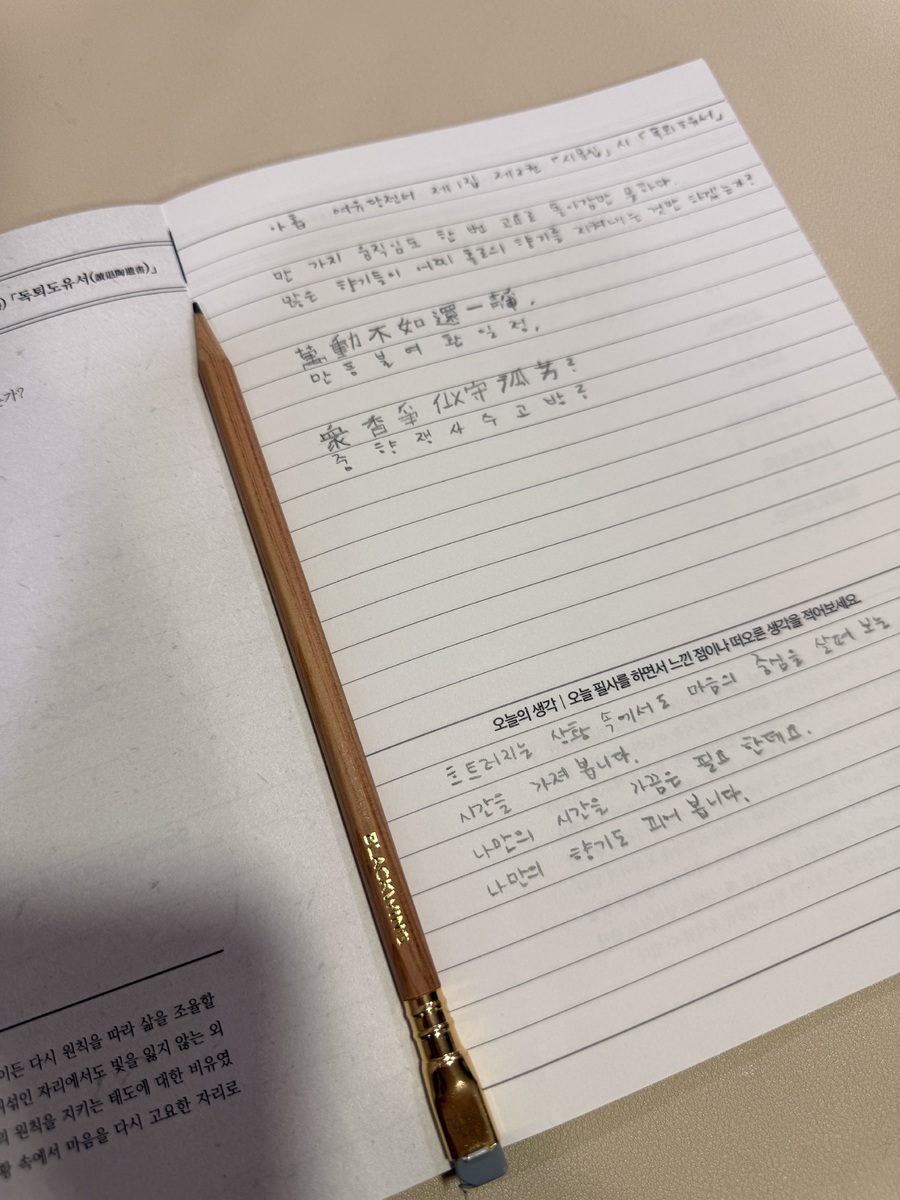 「독퇴도유서(讀退陶遺書)」
가?
이든 다시 원칙을 따라 삶을 조율할
섞인 자리에서도 빛을 잃지 않는 외
의 원칙을 지키는 태도에 대한 비유였
황 속에서 마음을 다시 고요한 자리로
BLACKWING
아홉 여유당전서 제1집 제2권 「시문집」 시 「독퇴도유서」
만 가지 움직임도 한 번 고요로 돌아감만 못하다.
많은 향기들이 어찌 홀로의 향기를 지켜내는 것만 하겠는가?
萬動不如還一靜,
만 동 불 여 환 일 정,
衆香爭似守孤芳?
중 향 쟁 사 수 고 방?
오늘의 생각 | 오늘 필사를 하면서 느낀 점이나 떠오른 생각을 적어보세요.
흐트러지는 상황 속에서도 마음의 중심을 살펴 보는
시간을 가져 봅니다.
나만의 시간을 가끔은 필요 한데요.
나만의 향기도 피어 봅니다.